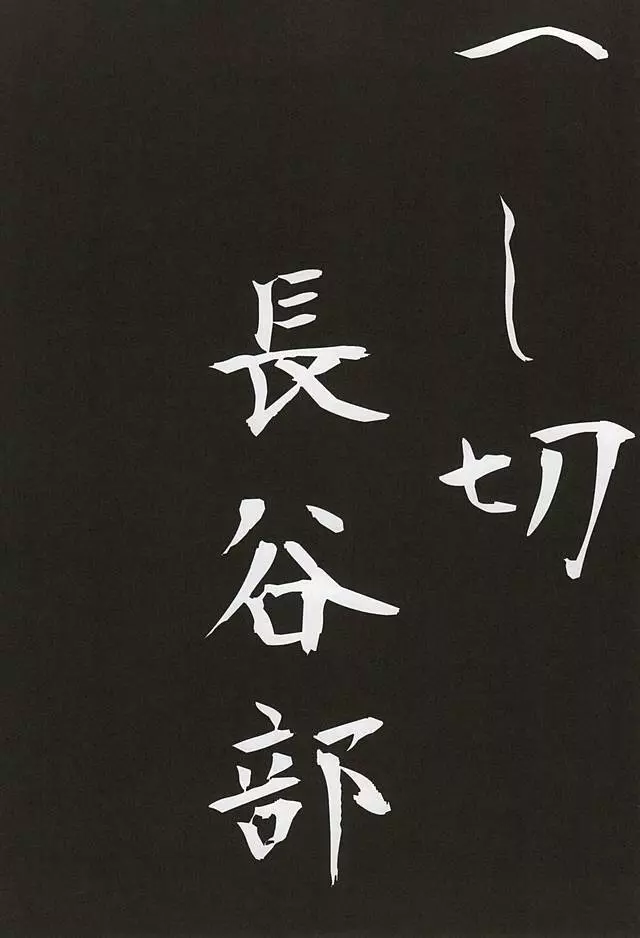 へし切
長谷部